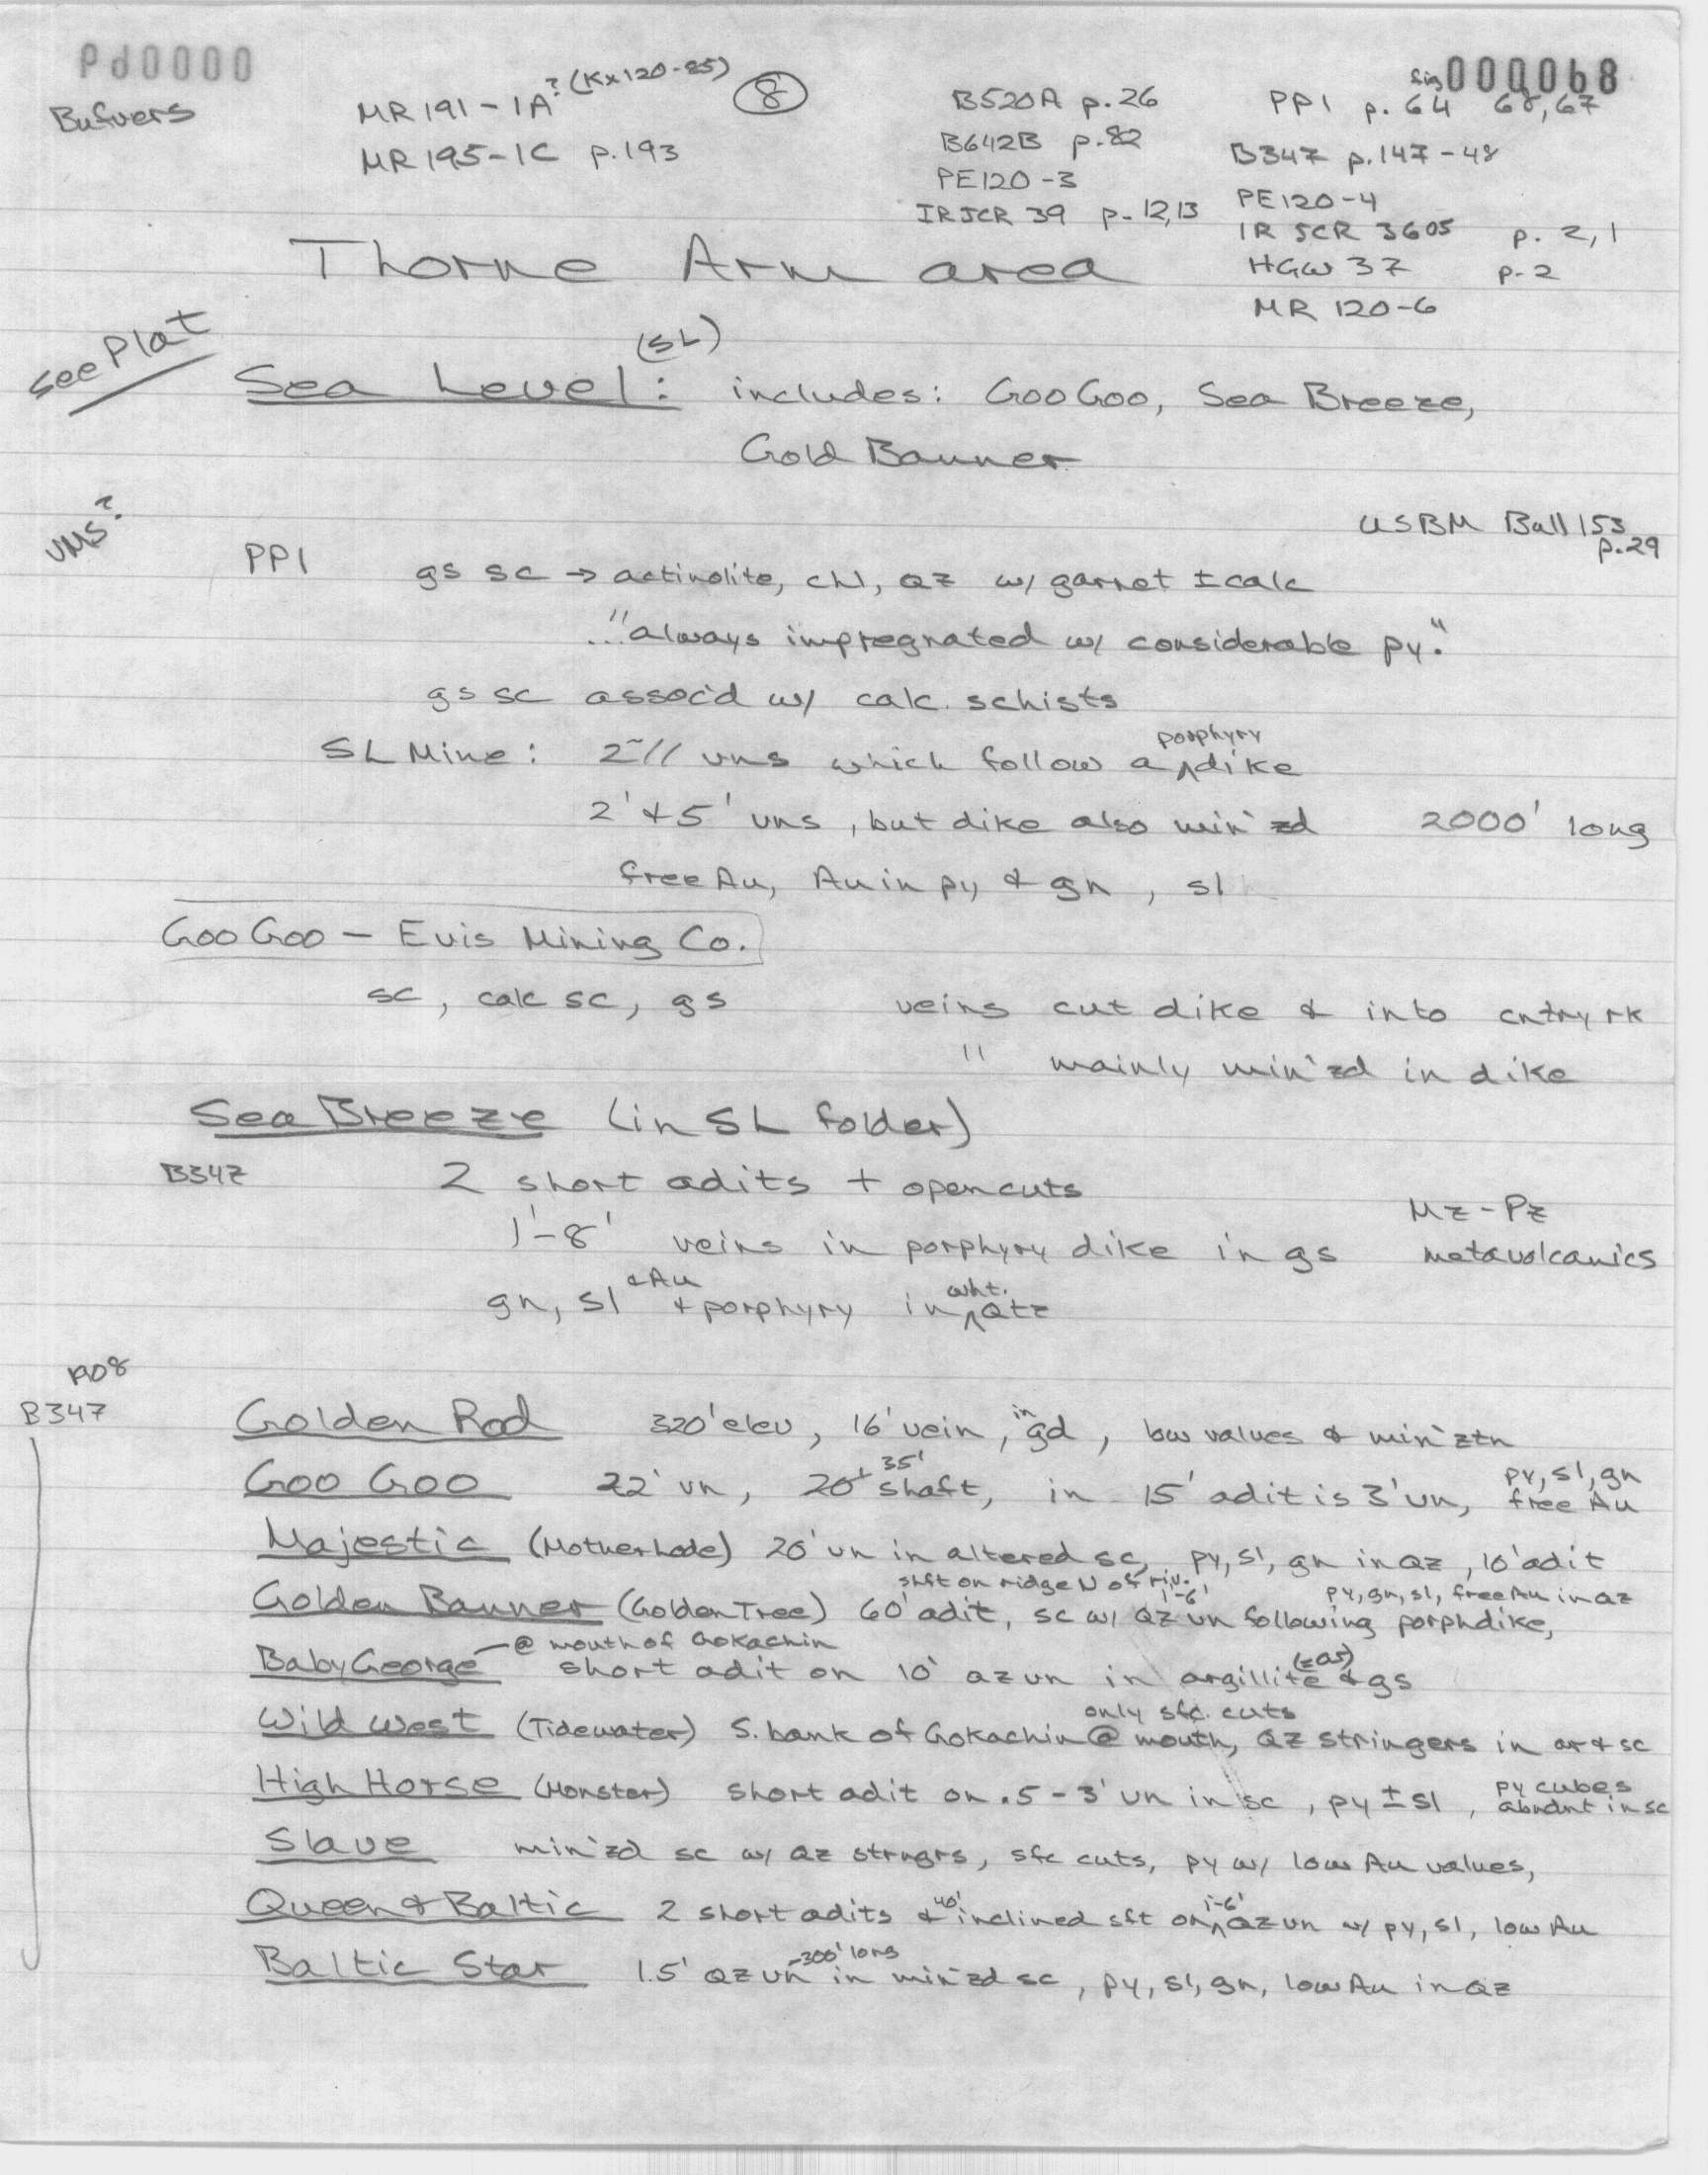 Pd0000
000068
Bufvers
MR 191-1A? (Kx120-85)
MR 195-1C p.193
8
B520A p.26
B642B p.82
PE120-3
IR JCR 39 p-12,13
PP1 p. 64 68,67
B347 p.147-48
PE120-4
IR SCR 3605 p. 2,1
HGW 37 p-2
MR 120-6
Thorne Arm area
see Plat
Sea Level: (SL) includes: GooGoo, Sea Breeze,
Gold Banner
VMS?
USBM Bull 153
p.29
PP1 gs sc → actinolite, chl, qz w/ garnet ± calc
..."always impregnated w/ considerable py."
gs sc assoc'd w/ calc. schists
SL Mine: 2 ~// vns which follow a porphyry dike
2' + 5' vns, but dike also min'zd 2000' long
free Au, Au in py & gn, sl
Goo Goo - Evis Mining Co.
sc, calc sc, gs veins cut dike & into cntry rk
" mainly min'zd in dike
Sea Breeze (in SL folder)
B347 2 short adits + opencuts
1'-8' veins in porphyry dike in gs
Mz-Pz
metavolcanics
gn, sl & Au + porphyry in wht. Qtz
1908
B347
Golden Rod 320' elev, 16' vein, in gd, low values & min'ztn
Goo Goo 22' vn, 20+ 35' shaft, in 15' adit is 3' vn, py, sl, gn free Au
Majestic (Motherlode) 20' vn in altered sc, py, sl, gn in Qz, 10' adit
shft on ridge N of riv. 1-6' py, gn, sl, free Au in Qz
Golden Banner (Golden Tree) 60' adit, sc w/ Qz vn following porph dike,
Baby George - @ mouth of Gokachin short adit on 10' qz vn in argillite (=ar) & gs
Wild West (Tidewater) S. bank of Gokachin @ mouth, only sfc. cuts Qz stringers in ar & sc
High Horse (Monster) short adit on .5-3' vn in sc, py ± sl, py cubes abndnt in sc
Slave min'zd sc w/ Qz strngrs, sfc cuts, py w/ low Au values,
Queen & Baltic 2 short adits & 40' inclined sft on 1-6' Qz vn w/ py, sl, low Au
Baltic Star 1.5' Qz vn ~300' long in min'zd sc, py, sl, gn, low Au in Qz